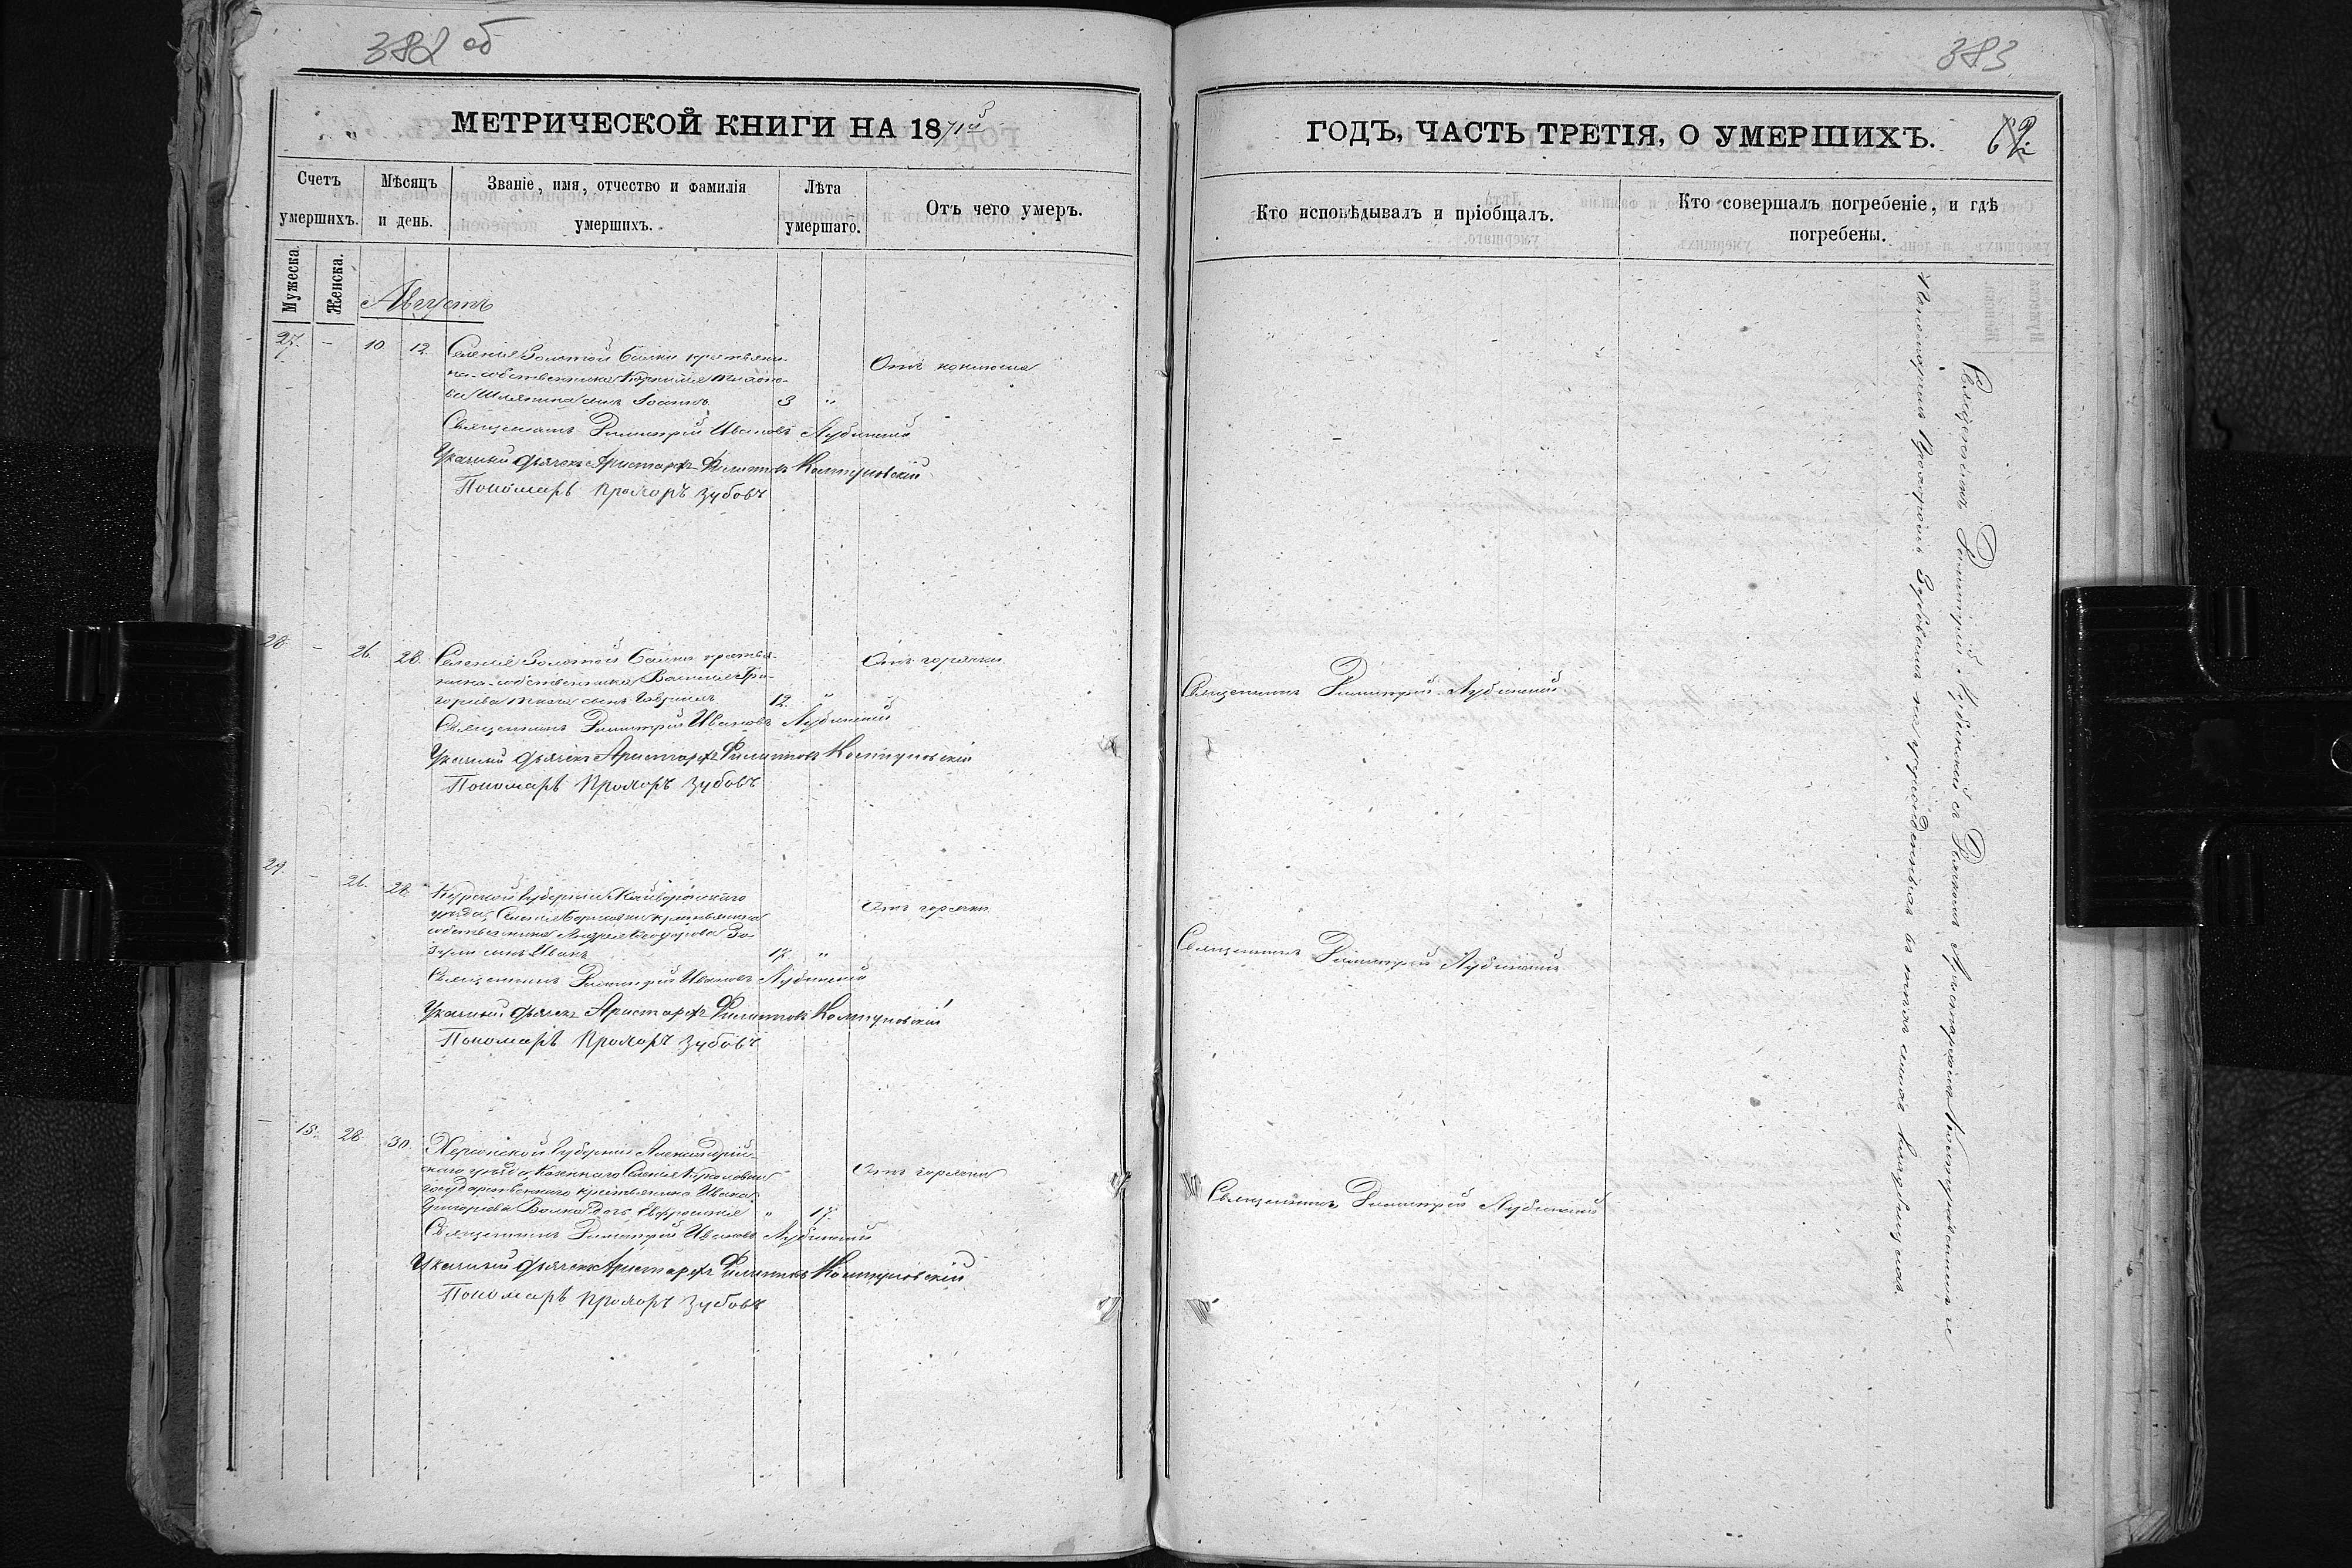 382 об
МЕТРИЧЕСКОЙ КНИГИ НА 1871й
Счетъ умершихъ.
Мѣсяцъ и день.
Званіе, имя, отчество и фамилія умершихъ.
Лѣта умершаго.
Отъ чего умеръ.
Мужеска.
Женска.
Августъ
27. - 10. 12. Селенія Золотой Балки крестьяни-
на-собственника Корнилія
сынъ Іоаннъ 3 "
Священникъ Димитрій Ивановъ Лубинскій
Указный дьячекъ Аристархъ Филиповъ
Пономарь Прохоръ Зубовъ
28. - 26. 28. Селенія Золотой Балки крестья-
нина-собственника Василія Гри-
горьева сынъ Гавріилъ 12. "
Отъ горячки
Священникъ Димитрій Ивановъ Лубинскій
Указный дьячекъ Аристархъ Филиповъ
Пономарь Прохоръ Зубовъ
29. - 26. 28. Курской Губерніи
уѣзда, Селенія крестьянина
собственника Андрея Ѳеодорова
сынъ Иванъ 17. "
Отъ горячки
Священникъ Димитрій Ивановъ Лубинскій
Указный дьячекъ Аристархъ Филиповъ
Пономарь Прохоръ Зубовъ
- 15. 28. 30. Херсонской Губерніи Александрій-
скаго уѣзда Казеннаго Селенія
государственнаго крестьянина Ивана
Григорьева Волка дочь Евфросинія " 17.
Отъ горячки
Священникъ Димитрій Ивановъ Лубинскій
Указный дьячекъ Аристархъ Филиповъ
Пономарь Прохоръ Зубовъ
383
ГОДЪ, ЧАСТЬ ТРЕТІЯ, О УМЕРШИХЪ.
62.
Кто исповѣдывалъ и пріобщалъ.
Кто совершалъ погребеніе, и гдѣ погребены.
Священникъ Димитрій Лубинскій
Священникъ Димитрій Лубинскій
Священникъ Димитрій Лубинскій
Священникъ Димитрій Лубинскій съ Дьячкомъ Аристархомъ
Пономаремъ Прохоромъ Зубовымъ на учрежденныхъ въ тѣхъ селахъ кладбищахъ.